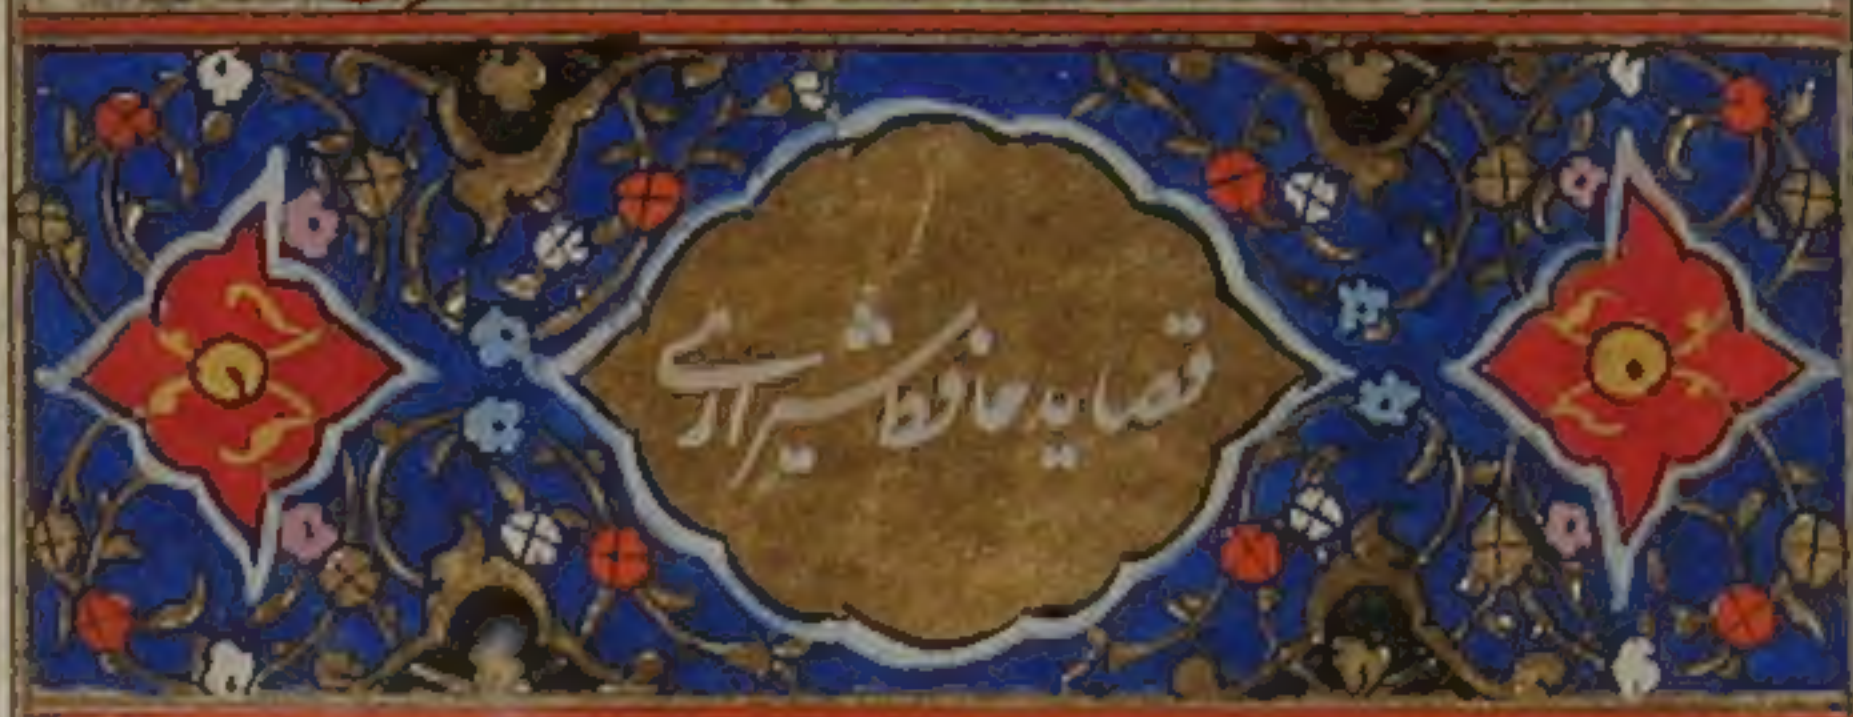 قصاید حافظ شیرازی